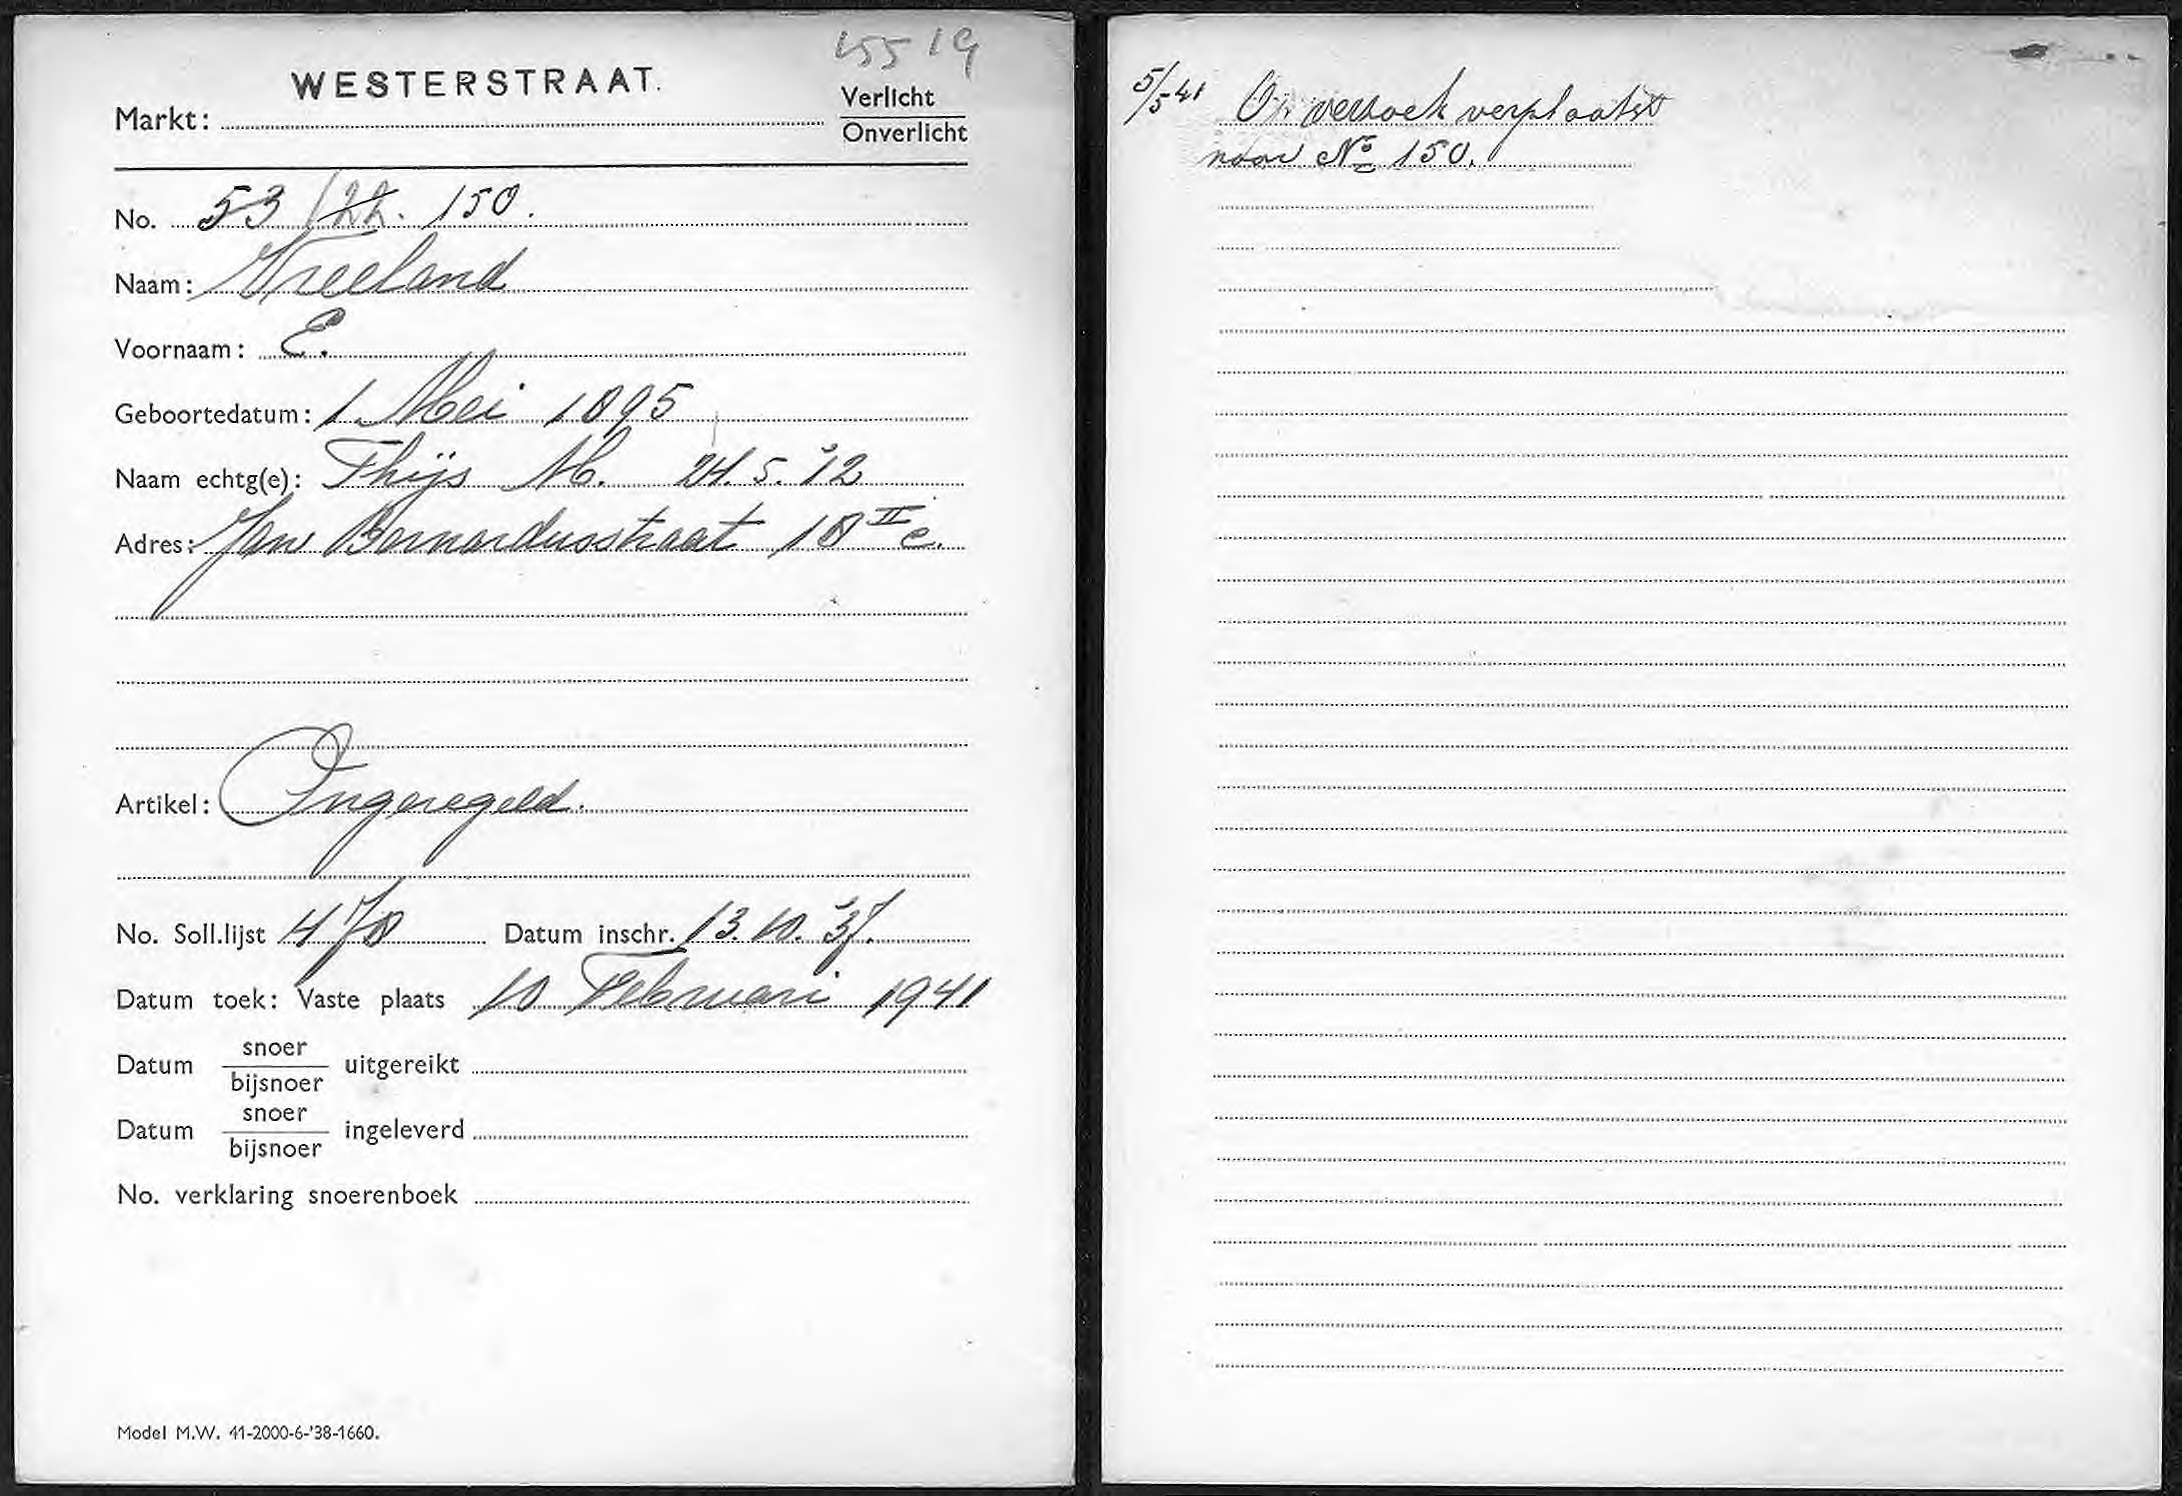 15519
WESTERSTRAAT.
Markt: Verlicht
Onverlicht
No. 53 / 22. 150.
Naam: Vreeland
Voornaam: E.
Geboortedatum: 1 Mei 1895
Naam echtg(e): Thijs M. 24.5.'12
Adres: Jan Bernardusstraat 18 II c.
Artikel: Ongeregeld.
No. Soll.lijst 478 Datum inschr. 13.10.'37.
Datum toek: Vaste plaats 10 Februari 1941
Datum snoer/bijsnoer uitgereikt
Datum snoer/bijsnoer ingeleverd
No. verklaring snoerenboek
Model M.W. 41-2000-6-'38-1660.
5/5 41 Op verzoek verplaatst
naar No 150.